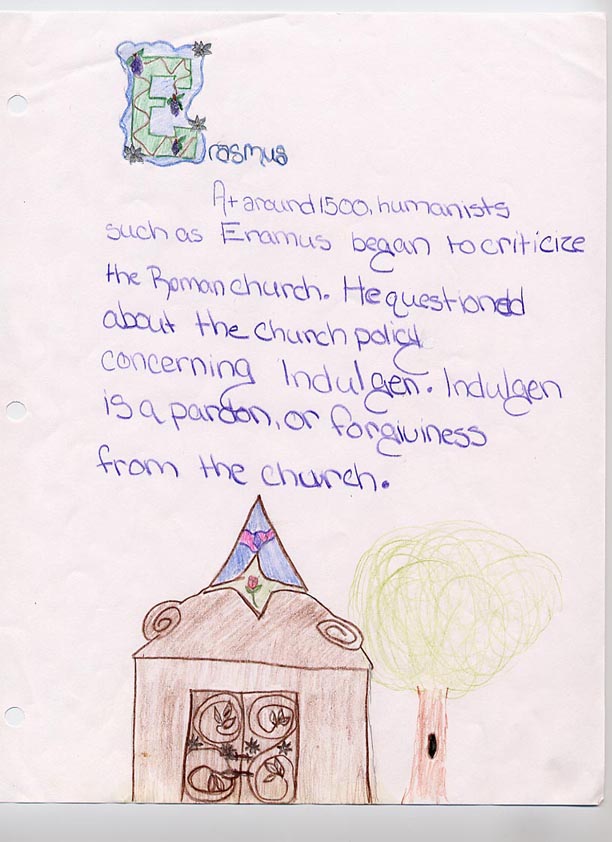 Erasmus
At around 1500, humanists
such as Eramus began to criticize
the Roman church. He questioned
about the church policy
concerning Indulgen. Indulgen
is a pardon, or forgiviness
from the church.